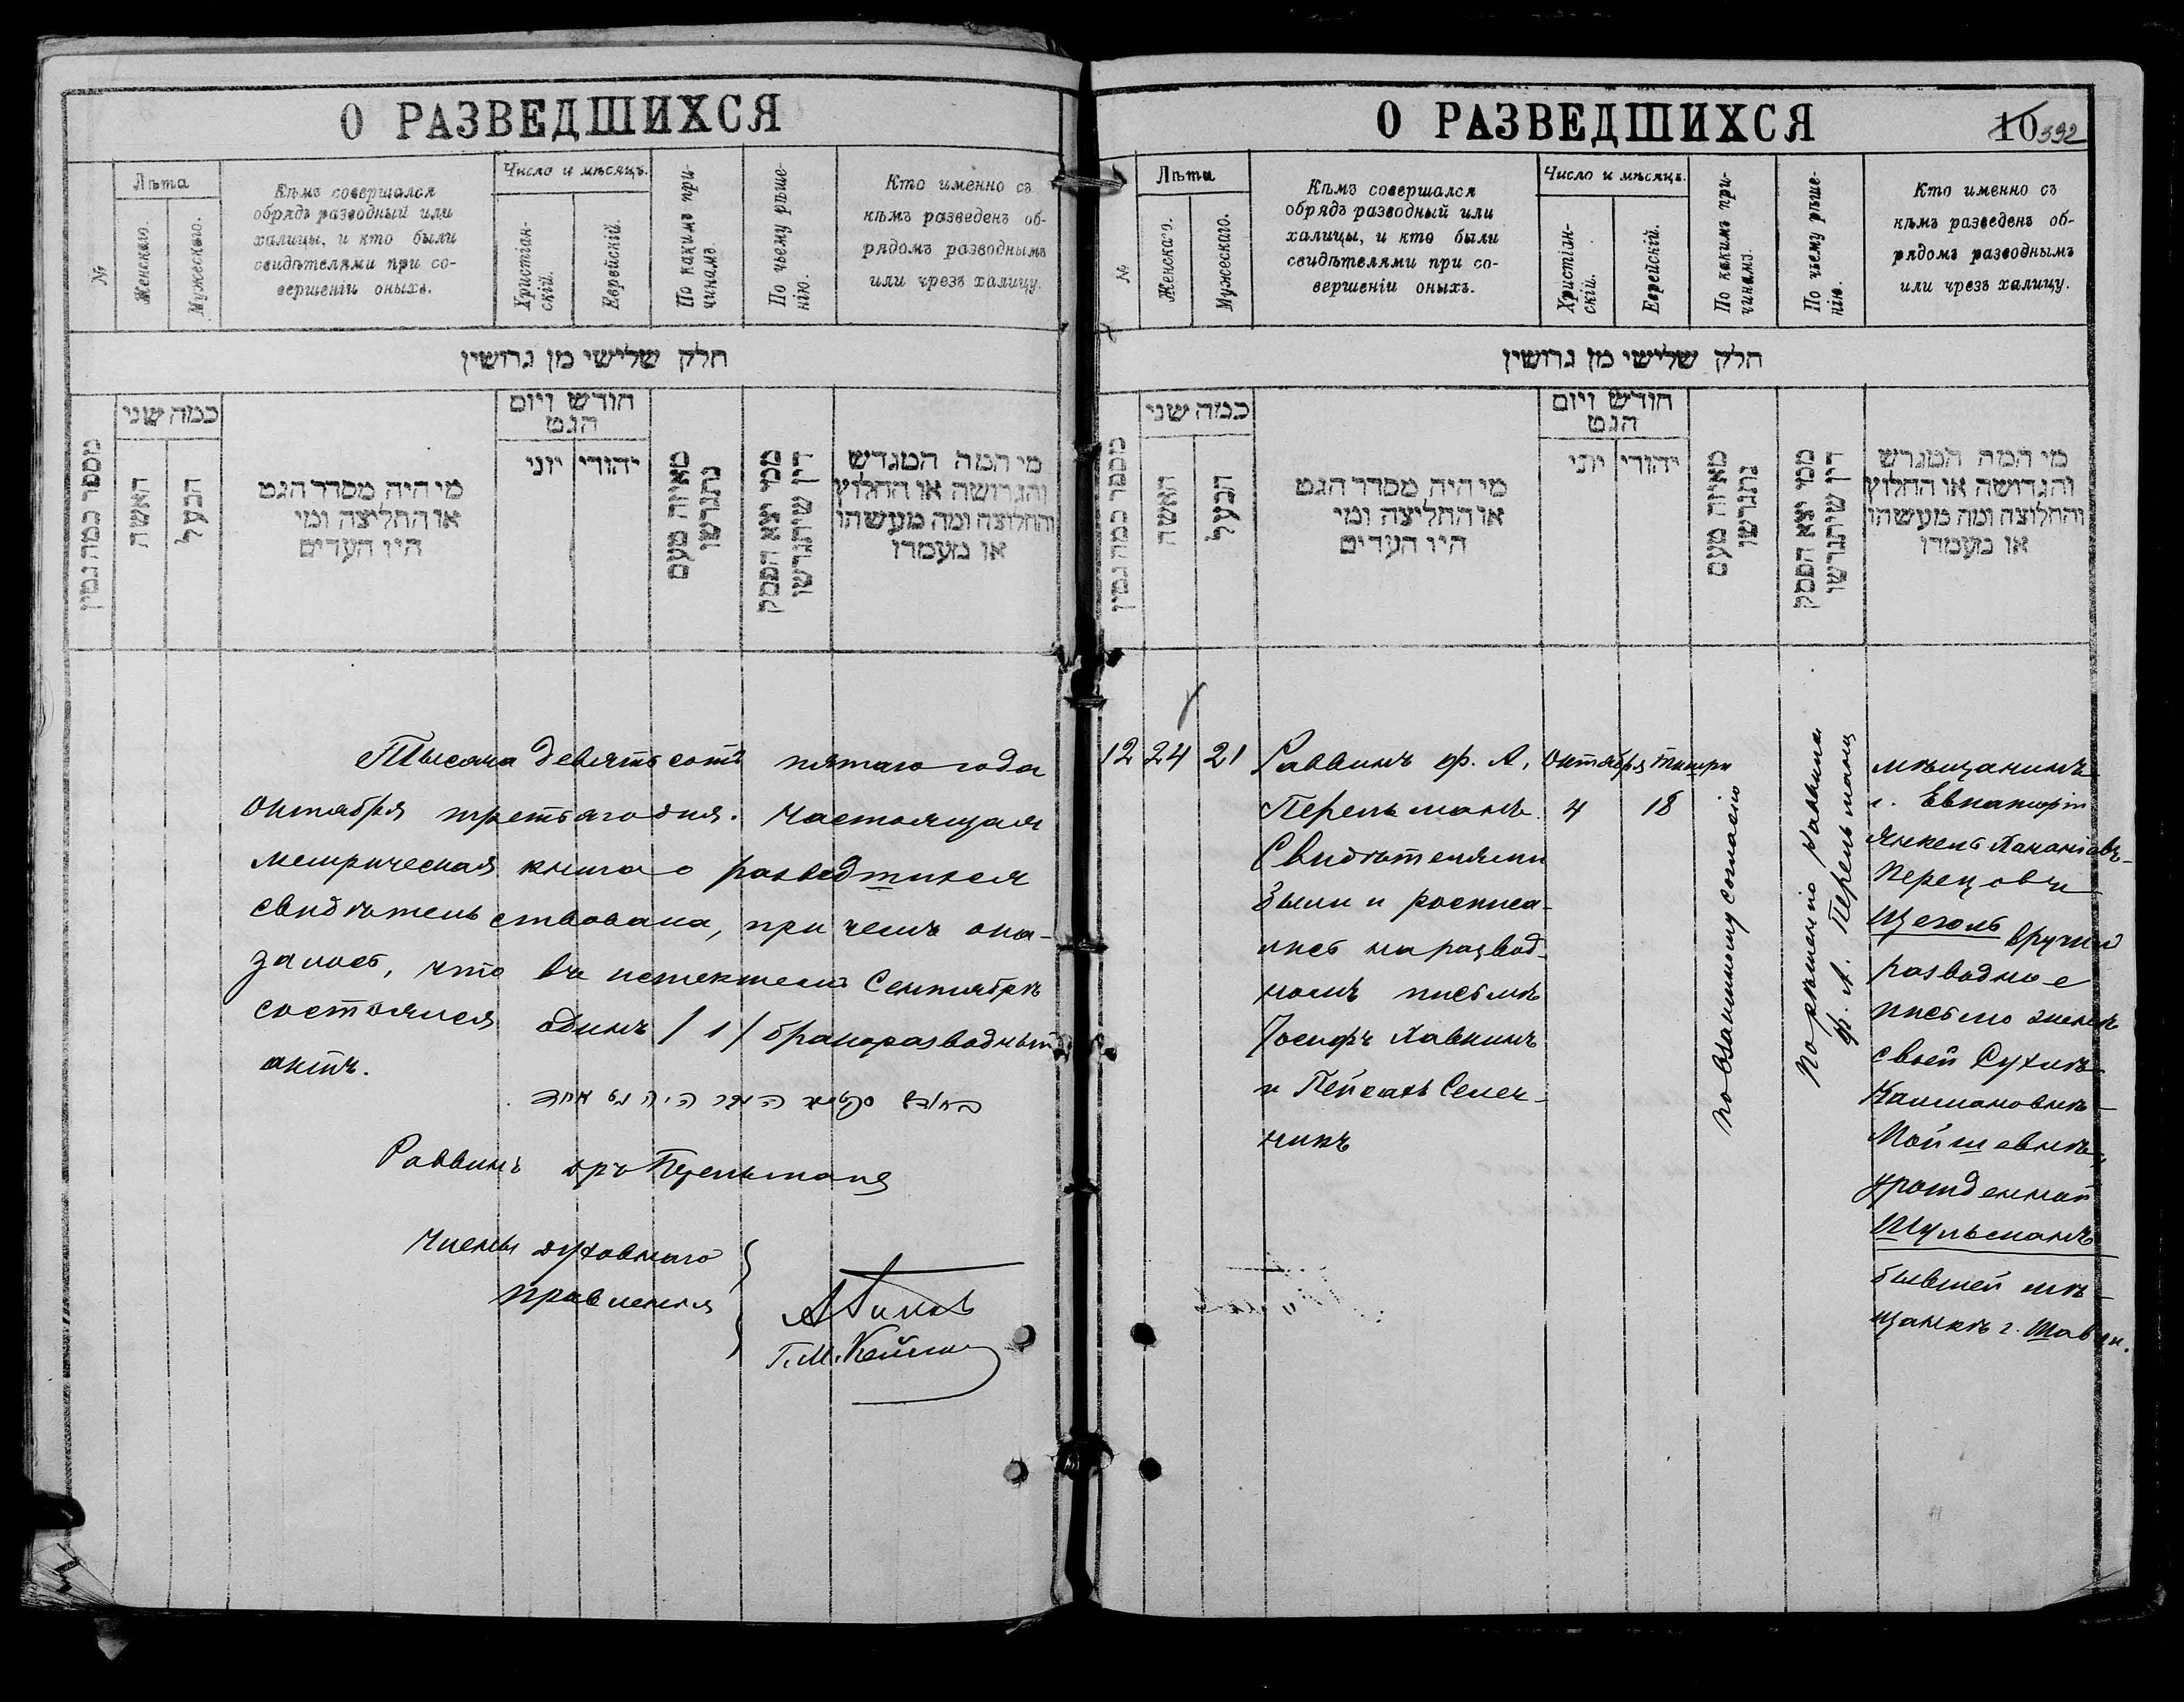 О РАЗВЕДШИХСЯ
№
Лѣта
Женскаго.
Мужескаго.
Кѣмъ совершался
обрядъ разводный или
халицы, и кто были
свидѣтелями при со-
вершеніи оныхъ.
Число и мѣсяцъ.
Христіан-
скій.
Еврейскій.
По какимъ при-
чинамъ.
По чьему рѣше-
нію.
Кто именно съ
кѣмъ разведенъ об-
рядомъ разводнымъ
или чрезъ халицу.
חלק שלישי מן גרושין
מספר כמה גטין
כמה שני
האשה
הבעל
מי היה מסדר הגט
או החליצה ומי
היו העדים
חודש ויום
הגט
יוני
יהודי
מאיזה טעם
נתגרשו
ממי יצא הפסק
דין שיתגרשו
מי המה המגרש
והגרושה או החלוץ
והחלוצה ומה מעשהו
או מעמדו
Тысяча девятьсотъ пятаго года
Октября третьяго дня. Настоящая
метрическая книга о разведшихся
свидѣтельствована, при чемъ ока-
залось, что въ истекшемъ Сентябрѣ
состоялся одинъ /1/ бракоразводный
актъ.
Раввинъ дръ Перельманъ
Члены духовнаго
правленія
О РАЗВЕДШИХСЯ
10 392
№
Лѣта
Женскаго.
Мужескаго.
Кѣмъ совершался
обрядъ разводный или
халицы, и кто были
свидѣтелями при со-
вершеніи оныхъ.
Число и мѣсяцъ.
Христіан-
скій.
Еврейскій.
По какимъ при-
чинамъ.
По чьему рѣше-
нію.
Кто именно съ
кѣмъ разведенъ об-
рядомъ разводнымъ
или чрезъ халицу.
חלק שלישי מן גרושין
מספר כמה גטין
כמה שני
האשה
הבעל
מי היה מסדר הגט
או החליצה ומי
היו העדים
חודש ויום
הגט
יוני
יהודי
מאיזה טעם
נתגרשו
ממי יצא הפסק
דין שיתגרשו
מי המה המגרש
והגרושה או החלוץ
והחלוצה ומה מעשהו
או מעמדו
12 24 21
Раввинъ Ф. А.
Перельманъ.
Свидѣтелями
были и росписа-
лись на развод-
номъ письмѣ
Іосифъ Хавкинъ
и Пейсахъ Семе-
никъ
Октября
4
Тишри
18
По взаимному согласію
По рѣшенію раввина
Ф. А. Перельмана
Мѣщанинъ
г. Евпаторіи
Янкель Хананіевъ-
Перецовъ
Щеголь вручилъ
разводное
письмо женѣ
своей Сухлѣ-
Калмановнѣ-
Мойшевнѣ,
урожденной
Шульманъ
бывшей мѣ-
щанкѣ г. Шавли.